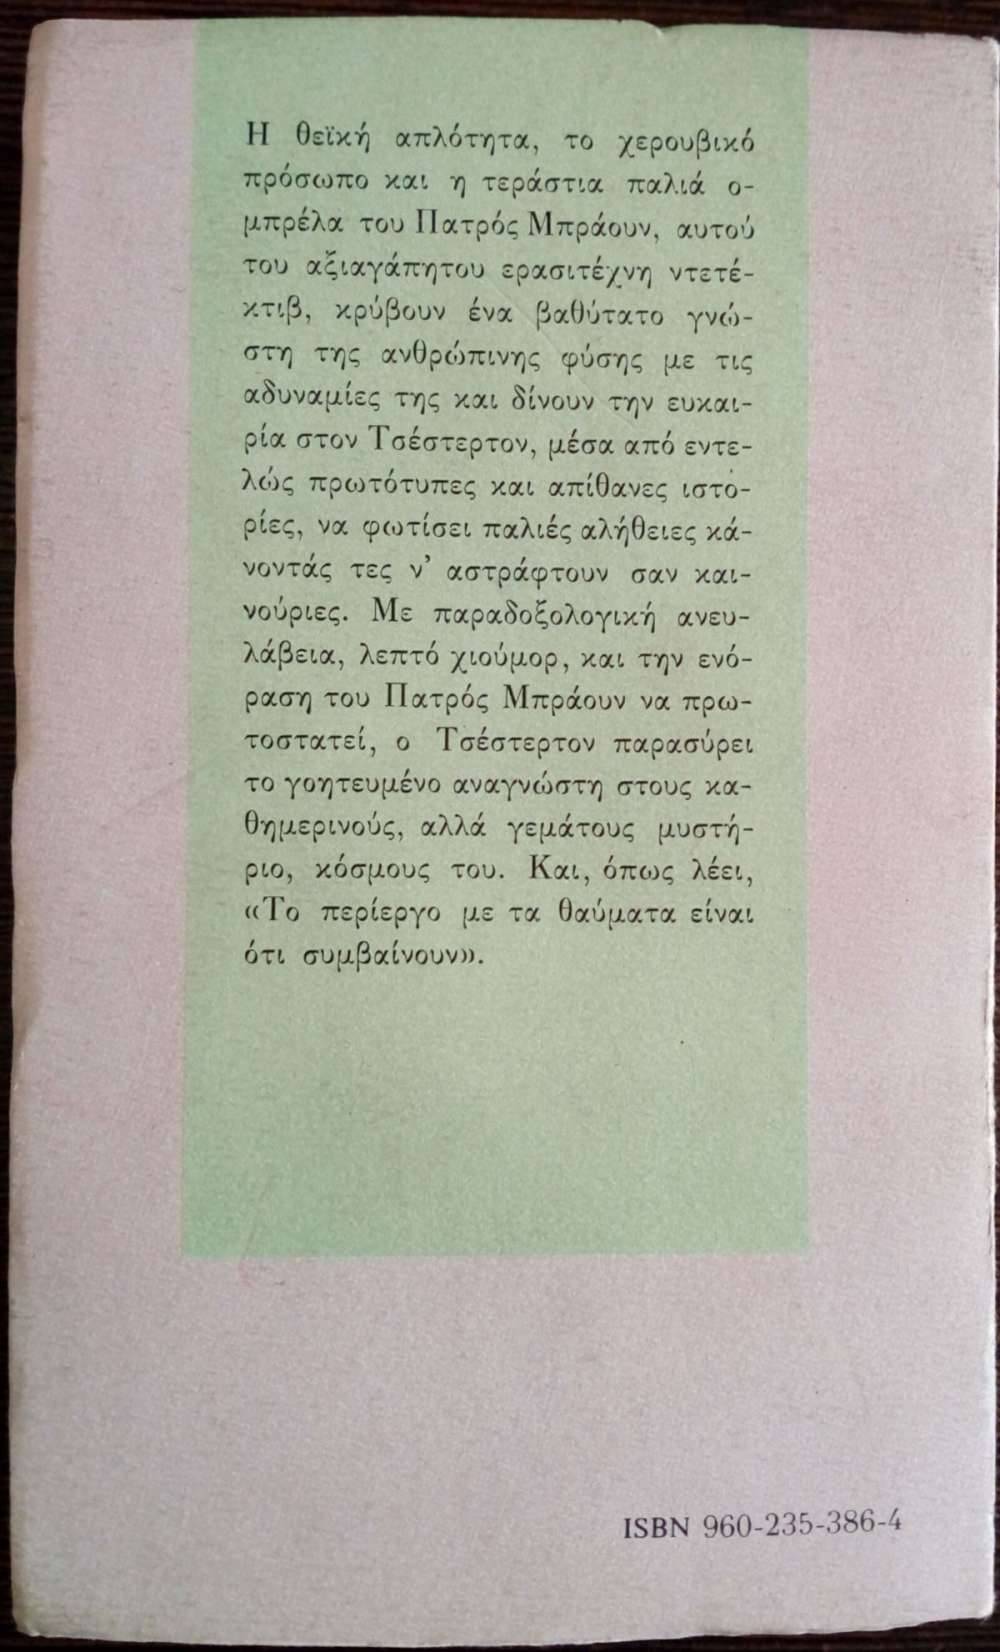 Η θεϊκή απλότητα, το χερουβικό
πρόσωπο και η τεράστια παλιά ο-
μπρέλα του Πατρός Μπράουν, αυτού
του αξιαγάπητου ερασιτέχνη ντετέ-
κτιβ, κρύβουν ένα βαθύτατο γνώ-
στη της ανθρώπινης φύσης με τις
αδυναμίες της και δίνουν την ευκαι-
ρία στον Τσέστερτον, μέσα από εντε-
λώς πρωτότυπες και απίθανες ιστο-
ρίες, να φωτίσει παλιές αλήθειες κά-
νοντάς τες ν' αστράφτουν σαν και-
νούριες. Με παραδοξολογική ανευ-
λάβεια, λεπτό χιούμορ, και την ενό-
ραση του Πατρός Μπράουν να πρω-
τοστατεί, ο Τσέστερτον παρασύρει
το γοητευμένο αναγνώστη στους κα-
θημερινούς, αλλά γεμάτους μυστή-
ριο, κόσμους του. Και, όπως λέει,
«Το περίεργο με τα θαύματα είναι
ότι συμβαίνουν».
ISBN 960-235-386-4